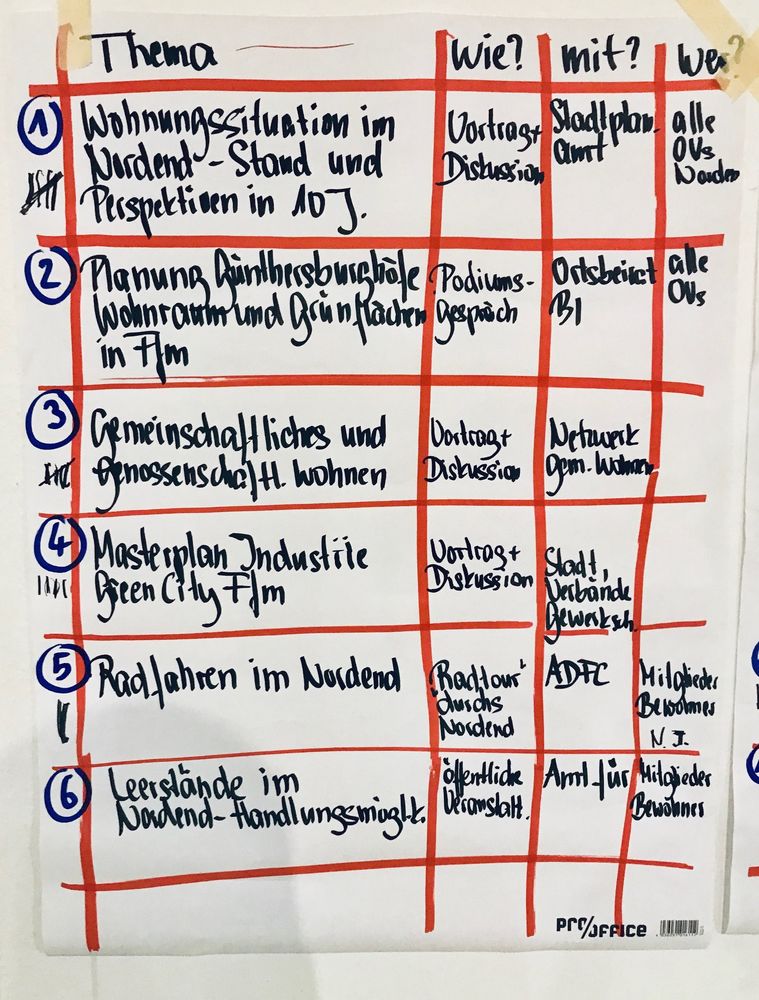 Thema wie? mit? wer?
1 Wohnungssituation im
Nordend - Stand und
Perspektiven in 10 J.
Vortrag +
Diskussion
Stadtplan.
amt
alle
OVs
Norden
2 Planung Günthersburghöfe
Wohnraum und Grünflächen
in Ffm
Podiums-
gespräch
Ortsbeirat
BI
alle
OVs
3 Gemeinschaftliches und
genossenschaftl. Wohnen
Vortrag +
Diskussion
Netzwerk
gem. Wohnen
4 Masterplan Industrie
Green City Ffm
Vortrag +
Diskussion
Stadt,
Verbände
Gewerksch.
5 Radfahren im Nordend
"Radtour"
durchs
Nordend
ADFC
Mitglieder
Bewohner
N. I.
6 Leerstände im
Nordend - Handlungsmöglk.
öffentliche
Veranstalt.
Amt für
Mitglieder
Bewohner
PRO/OFFICE